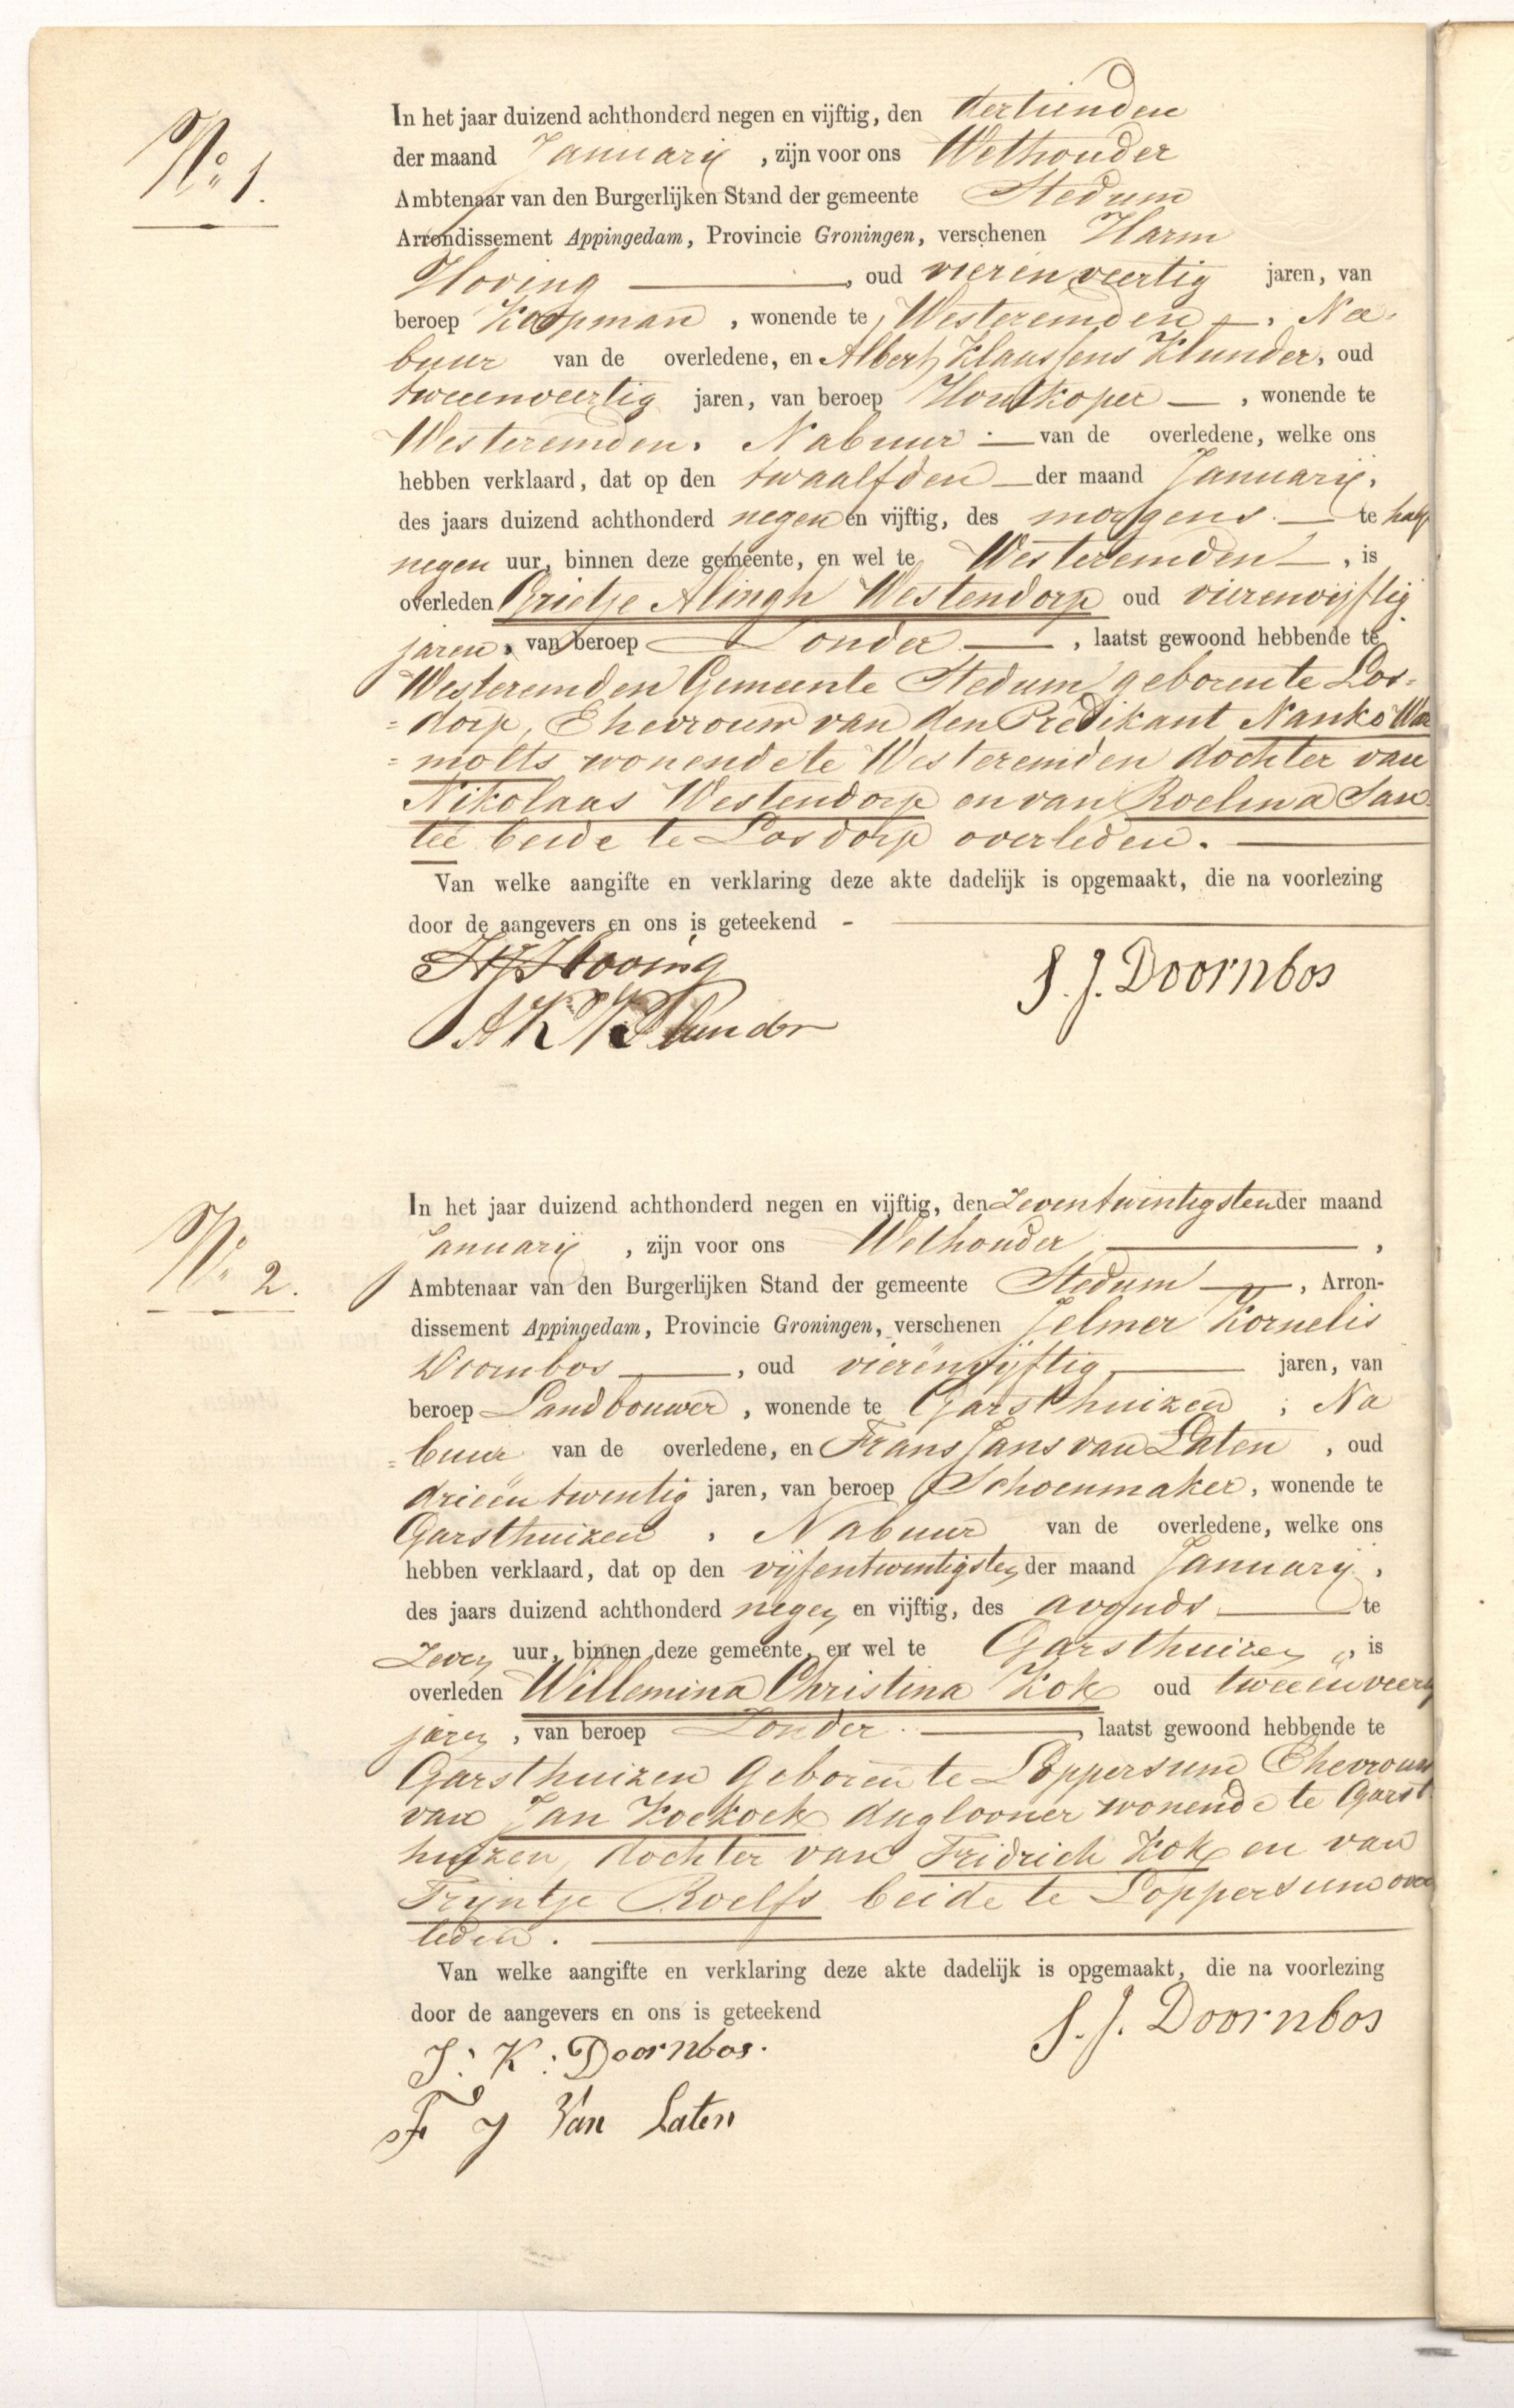 No 1.
In het jaar duizend achthonderd negen en vijftig, den dertienden
der maand Januarij, zijn voor ons Wethouder
Ambtenaar van den Burgerlijken Stand der gemeente Stedum
Arrondissement Appingedam, Provincie Groningen, verschenen Harm
Hoving, oud vierenveertig jaren, van
beroep Koopman, wonende te Westeremden, Na-
buur van de overledene, en Albert Klaassens Klunder, oud
tweeenveertig jaren, van beroep Houtkoper, wonende te
Westeremden. Nabuur van de overledene, welke ons
hebben verklaard, dat op den twaalfden der maand Januarij,
des jaars duizend achthonderd negen en vijftig, des morgens te half
negen uur, binnen deze gemeente, en wel te Westeremden, is
overleden Grietje Alingh Westendorp oud vierenvijftig
jaren, van beroep Zonder, laatst gewoond hebbende te
Westeremden Gemeente Stedum geboren te Los-
=dorp, Ehevrouw van den Predikant Nanko Wia
=molts wonende te Westeremden dochter van
Nikolaas Westendorp en van Roelina San
tee beide te Losdorp overleden.
Van welke aangifte en verklaring deze akte dadelijk is opgemaakt, die na voorlezing
door de aangevers en ons is geteekend -
H Hoving
S. J. Doornbos
A K Klunder
No 2.
In het jaar duizend achthonderd negen en vijftig, den Zeventwintigsten der maand
Januarij, zijn voor ons Wethouder,
Ambtenaar van den Burgerlijken Stand der gemeente Stedum, Arron-
dissement Appingedam, Provincie Groningen, verschenen Jelmer Kornelis
Doornbos, oud vierënvijftig jaren, van
beroep Landbouwer, wonende te Garsthuizen; Na
=buur van de overledene, en Frans Jans van Laten, oud
drieëntwentig jaren, van beroep Schoenmaker, wonende te
Garsthuizen, Nabuur van de overledene, welke ons
hebben verklaard, dat op den vijfentwentigsten der maand Januarij,
des jaars duizend achthonderd negen en vijftig, des avonds te
Zeven uur, binnen deze gemeente, en wel te Garsthuizen, is
overleden Willemina Christina Kok oud tweeënveertig
jaren, van beroep Zonder, laatst gewoond hebbende te
Garsthuizen Geboren te Loppersum Ehevrouw
van Jan Koekoek daglooner wonende te Garst
huizen, dochter van Fridrich Kok en van
Trijntje Roelfs beide te Loppersum over
leden.
Van welke aangifte en verklaring deze akte dadelijk is opgemaakt, die na voorlezing
door de aangevers en ons is geteekend
S. J. Doornbos
J. K. Doornbos.
F J Van Laten